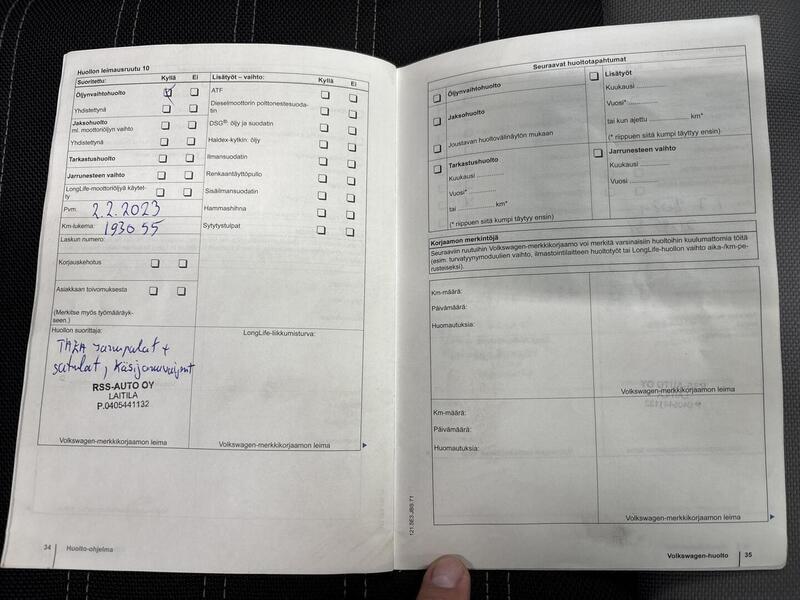 Huollon leimausruutu 10
Suoritettu: Kyllä Ei
Öljynvaihtohuolto
Yhdistettynä
Jaksohuolto
ml. moottoriöljyn vaihto
Yhdistettynä
Tarkastushuolto
Jarrunesteen vaihto
LongLife-moottoriöljyä käytet-
ty
Pvm. 2.2.2023
Km-lukema: 193055
Laskun numero:
Korjauskehotus
Asiakkaan toivomuksesta
(Merkitse myös työmääräyk-
seen.)
Huollon suorittaja:
TAKA Jarrupalat +
satulat, Käsijarruvaijerit
RSS-AUTO OY
LAITILA
P.0405441132
Volkswagen-merkkikorjaamon leima
Lisätyöt – vaihto: Kyllä Ei
ATF
Dieselmoottorin polttonestesuoda-
tin
DSG®: öljy ja suodatin
Haldex-kytkin: öljy
Ilmansuodatin
Renkaantäyttöpullo
Sisäilmansuodatin
Hammashihna
Sytytystulpat
LongLife-liikkumisturva:
Volkswagen-merkkikorjaamon leima
34 Huolto-ohjelma
Seuraavat huoltotapahtumat
Öljynvaihtohuolto
Jaksohuolto
Joustavan huoltovälinäytön mukaan
Tarkastushuolto
Kuukausi ............
Vuosi* ............
tai ............ km*
(* riippuen siitä kumpi täyttyy ensin)
Lisätyöt
Kuukausi ............
Vuosi* ............
tai kun ajettu ............ km*
(* riippuen siitä kumpi täyttyy ensin)
Jarrunesteen vaihto
Kuukausi ............
Vuosi ............
Korjaamon merkintöjä
Seuraaviin ruutuihin Volkswagen-merkkikorjaamo voi merkitä varsinaisiin huoltoihin kuulumattomia töitä
(esim. turvatyynymoduulien vaihto, ilmastointilaitteen huoltotyöt tai LongLife-huollon vaihto aika-/km-pe-
rusteiseksi).
Km-määrä:
Päivämäärä:
Huomautuksia:
Volkswagen-merkkikorjaamon leima
Km-määrä:
Päivämäärä:
Huomautuksia:
Volkswagen-merkkikorjaamon leima
121.5E3.JBS.71
Volkswagen-huolto 35